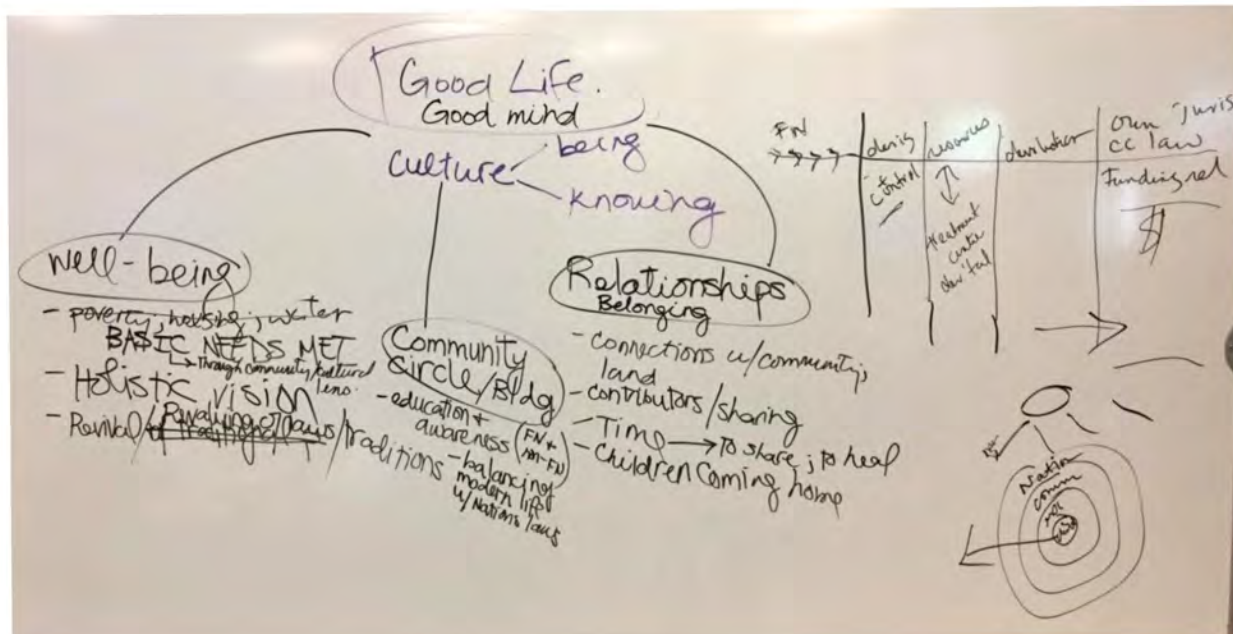 Good Life.
Good mind
Culture
being
Knowing
Well-being
- poverty, housing, water
BASIC NEEDS MET
Through community/cultural
lens
- Holistic vision
- Revival/
/traditions
Community
Circle/Bldg
- education +
awareness (FN +
non-FN)
- balancing
modern life
w/Nations laws
Relationships
Belonging
- Connections w/community,
land
- Contributors/sharing
- Time → To share; to heal
- Children Coming home
FN
control
resources
treatment
own juris
CC law
Funding rel
$
Nation
comm